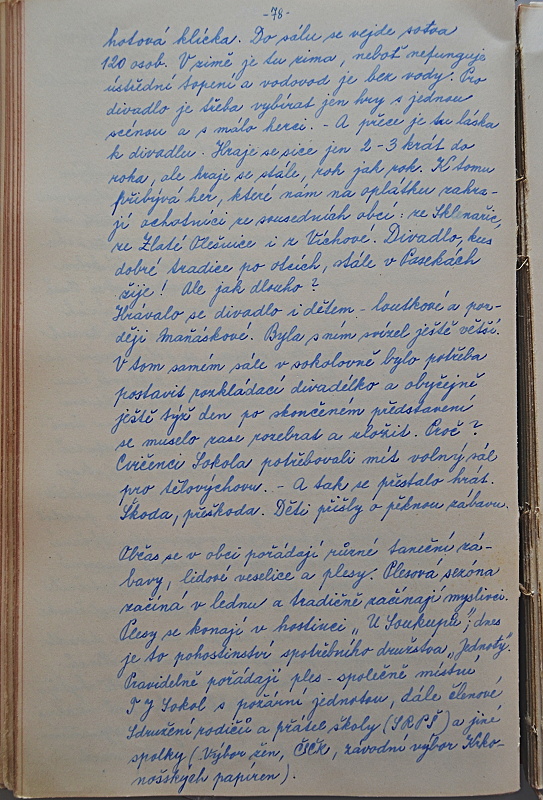 -78-
hotová klícka. Do sálu se vejde sotva
120 osob. V zimě je tu zima, neboť nefunguje
ústřední topení a vodovod je bez vody. Pro
divadlo je třeba vybírat jen hry s jednou
scénou a s málo herci. - A přece je tu láska
k divadlu. Hraje se sice jen 2-3 krát do
roka, ale hraje se stále, rok jak rok. K tomu
přibývá her, které nám na oplátku zahra-
jí ochotníci ze sousedních obcí: ze Sklenařic,
ze Zlaté Olešnice i z Víchové. Divadlo, kus
dobré tradice po otcích, stále v Pasekách
žije! Ale jak dlouho?
Hrávalo se divadlo i dětem - loutkové a poz-
ději Maňáskové. Byla s ním svízel ještě větší.
V tom samém sále v sokolovně bylo potřeba
postavit rozkládací divadélko a obyčejně
ještě týž den po skončeném představení
se muselo zase rozebrat a uložit. Proč?
Cvičenci Sokola potřebovali mít volný sál
pro tělovýchovu. - A tak se přestalo hrát.
Škoda, přeškoda. Děti přišly o pěknou zábavu.
Občas se v obci pořádají různé taneční zá-
bavy, lidové veselice a plesy. Plesová sezóna
začíná v lednu a tradičně začínají myslivci.
Plesy se konají v hostinci „U Soukupů"; dnes
je to pohostinství spotřebního družstva „Jednoty".
Pravidelně pořádají ples - společně místní
TJ Sokol s požární jednotou, dále členové
Sdružení rodičů a přátel školy (SRPŠ) a jiné
spolky (Výbor žen, ČSČK, závodní výbor Krko-
nošských papíren).